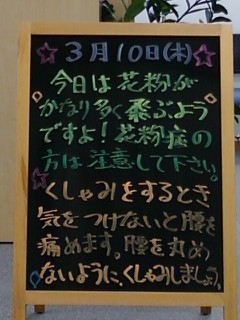 3月10日(木)
今日は花粉が
かなり多く飛ぶよう
ですよ!花粉症の
方は注意して下さい。
くしゃみをするとき
気をつけないと腰を
痛めます。腰を丸め
ないように、くしゃみしましょう。